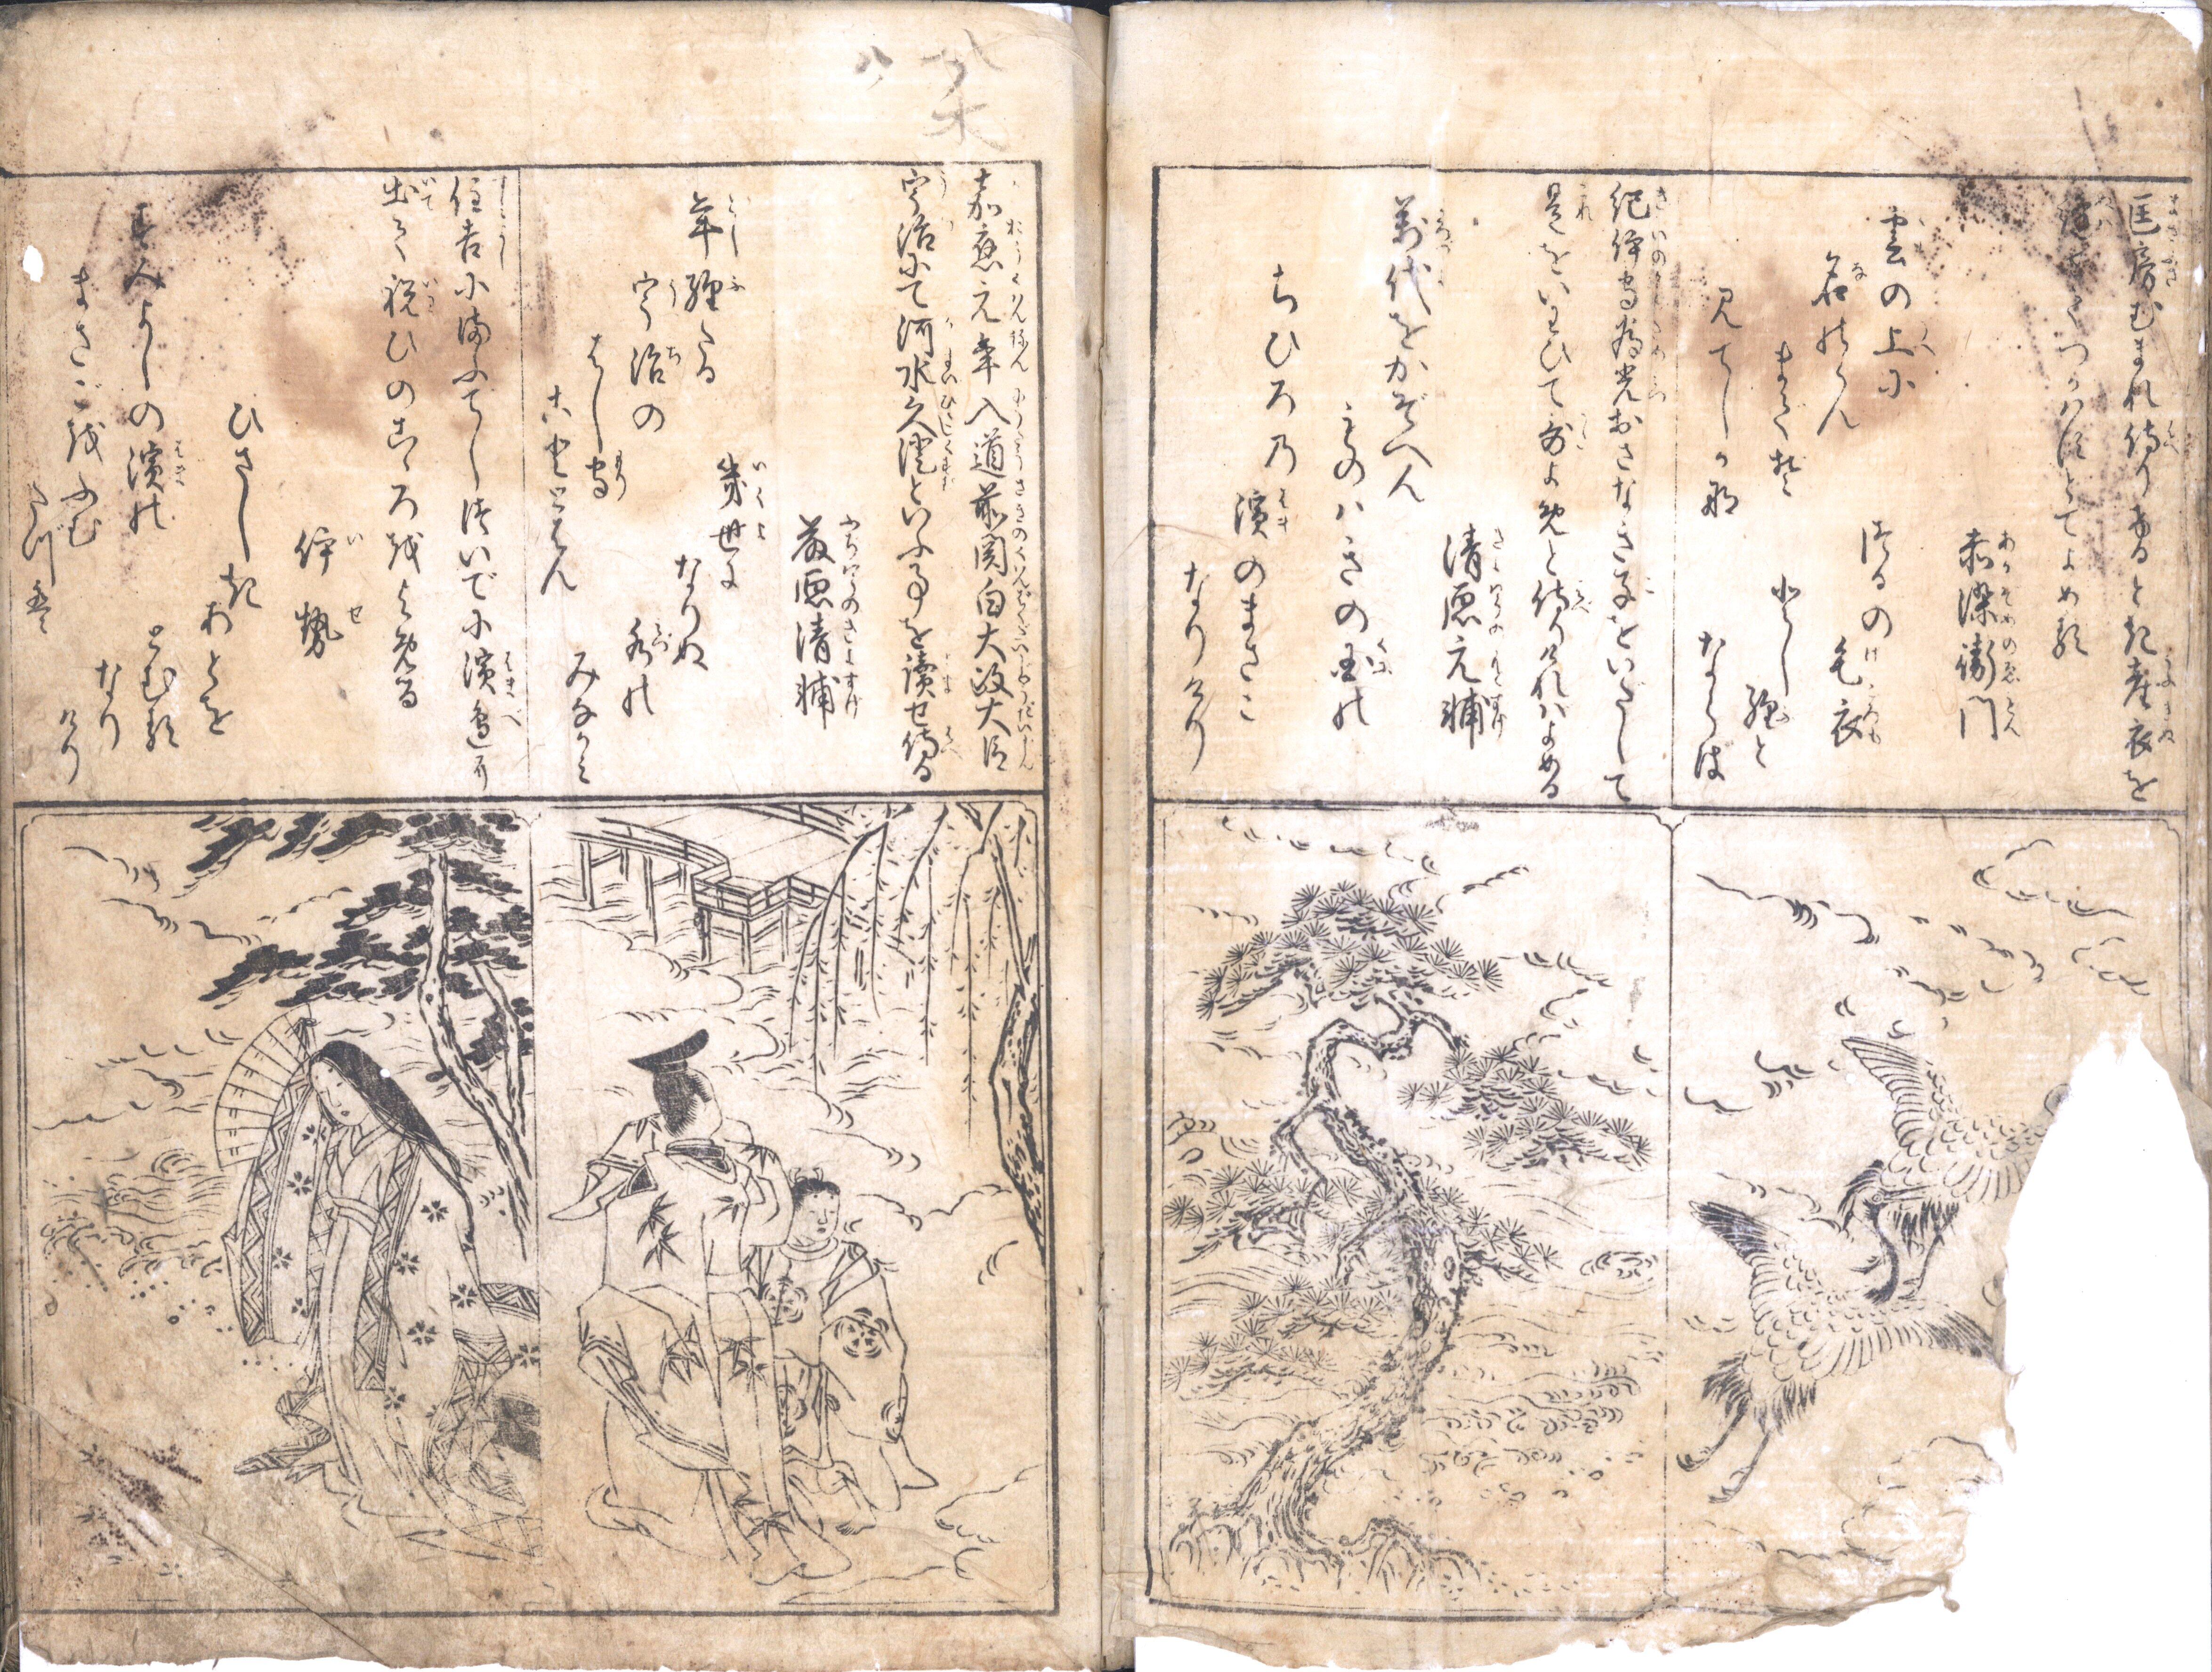 匡房むまれ侍りけるとき産衣を
ぬはせてつかはすとてよめる
赤染衛門
雲の上に
のぼらんまでも
見てしがな
つるの毛衣
年経と
ならば
紀伊守為光おさなき子をいだして
是をいわひて哥よめと侍りければよめる
清原元輔
万代をかぞへん
ものはきの国の
ちひろの濱のまさこ
なりけり
嘉應元年入道前関白大政大臣
宇治にて河水久澄といふ事を讀せ侍る
藤原清輔
年経たる
宇治の
はし守
こととはん
幾世に
なりぬ
水の
みなかみ
住吉に満ふてし侍いで小濱邊に
出て祝ひのこころをよめる
伊勢
すみよしの濱の
まさごをふむ
たづは
ひさしき
あとを
とむる
なり
けり